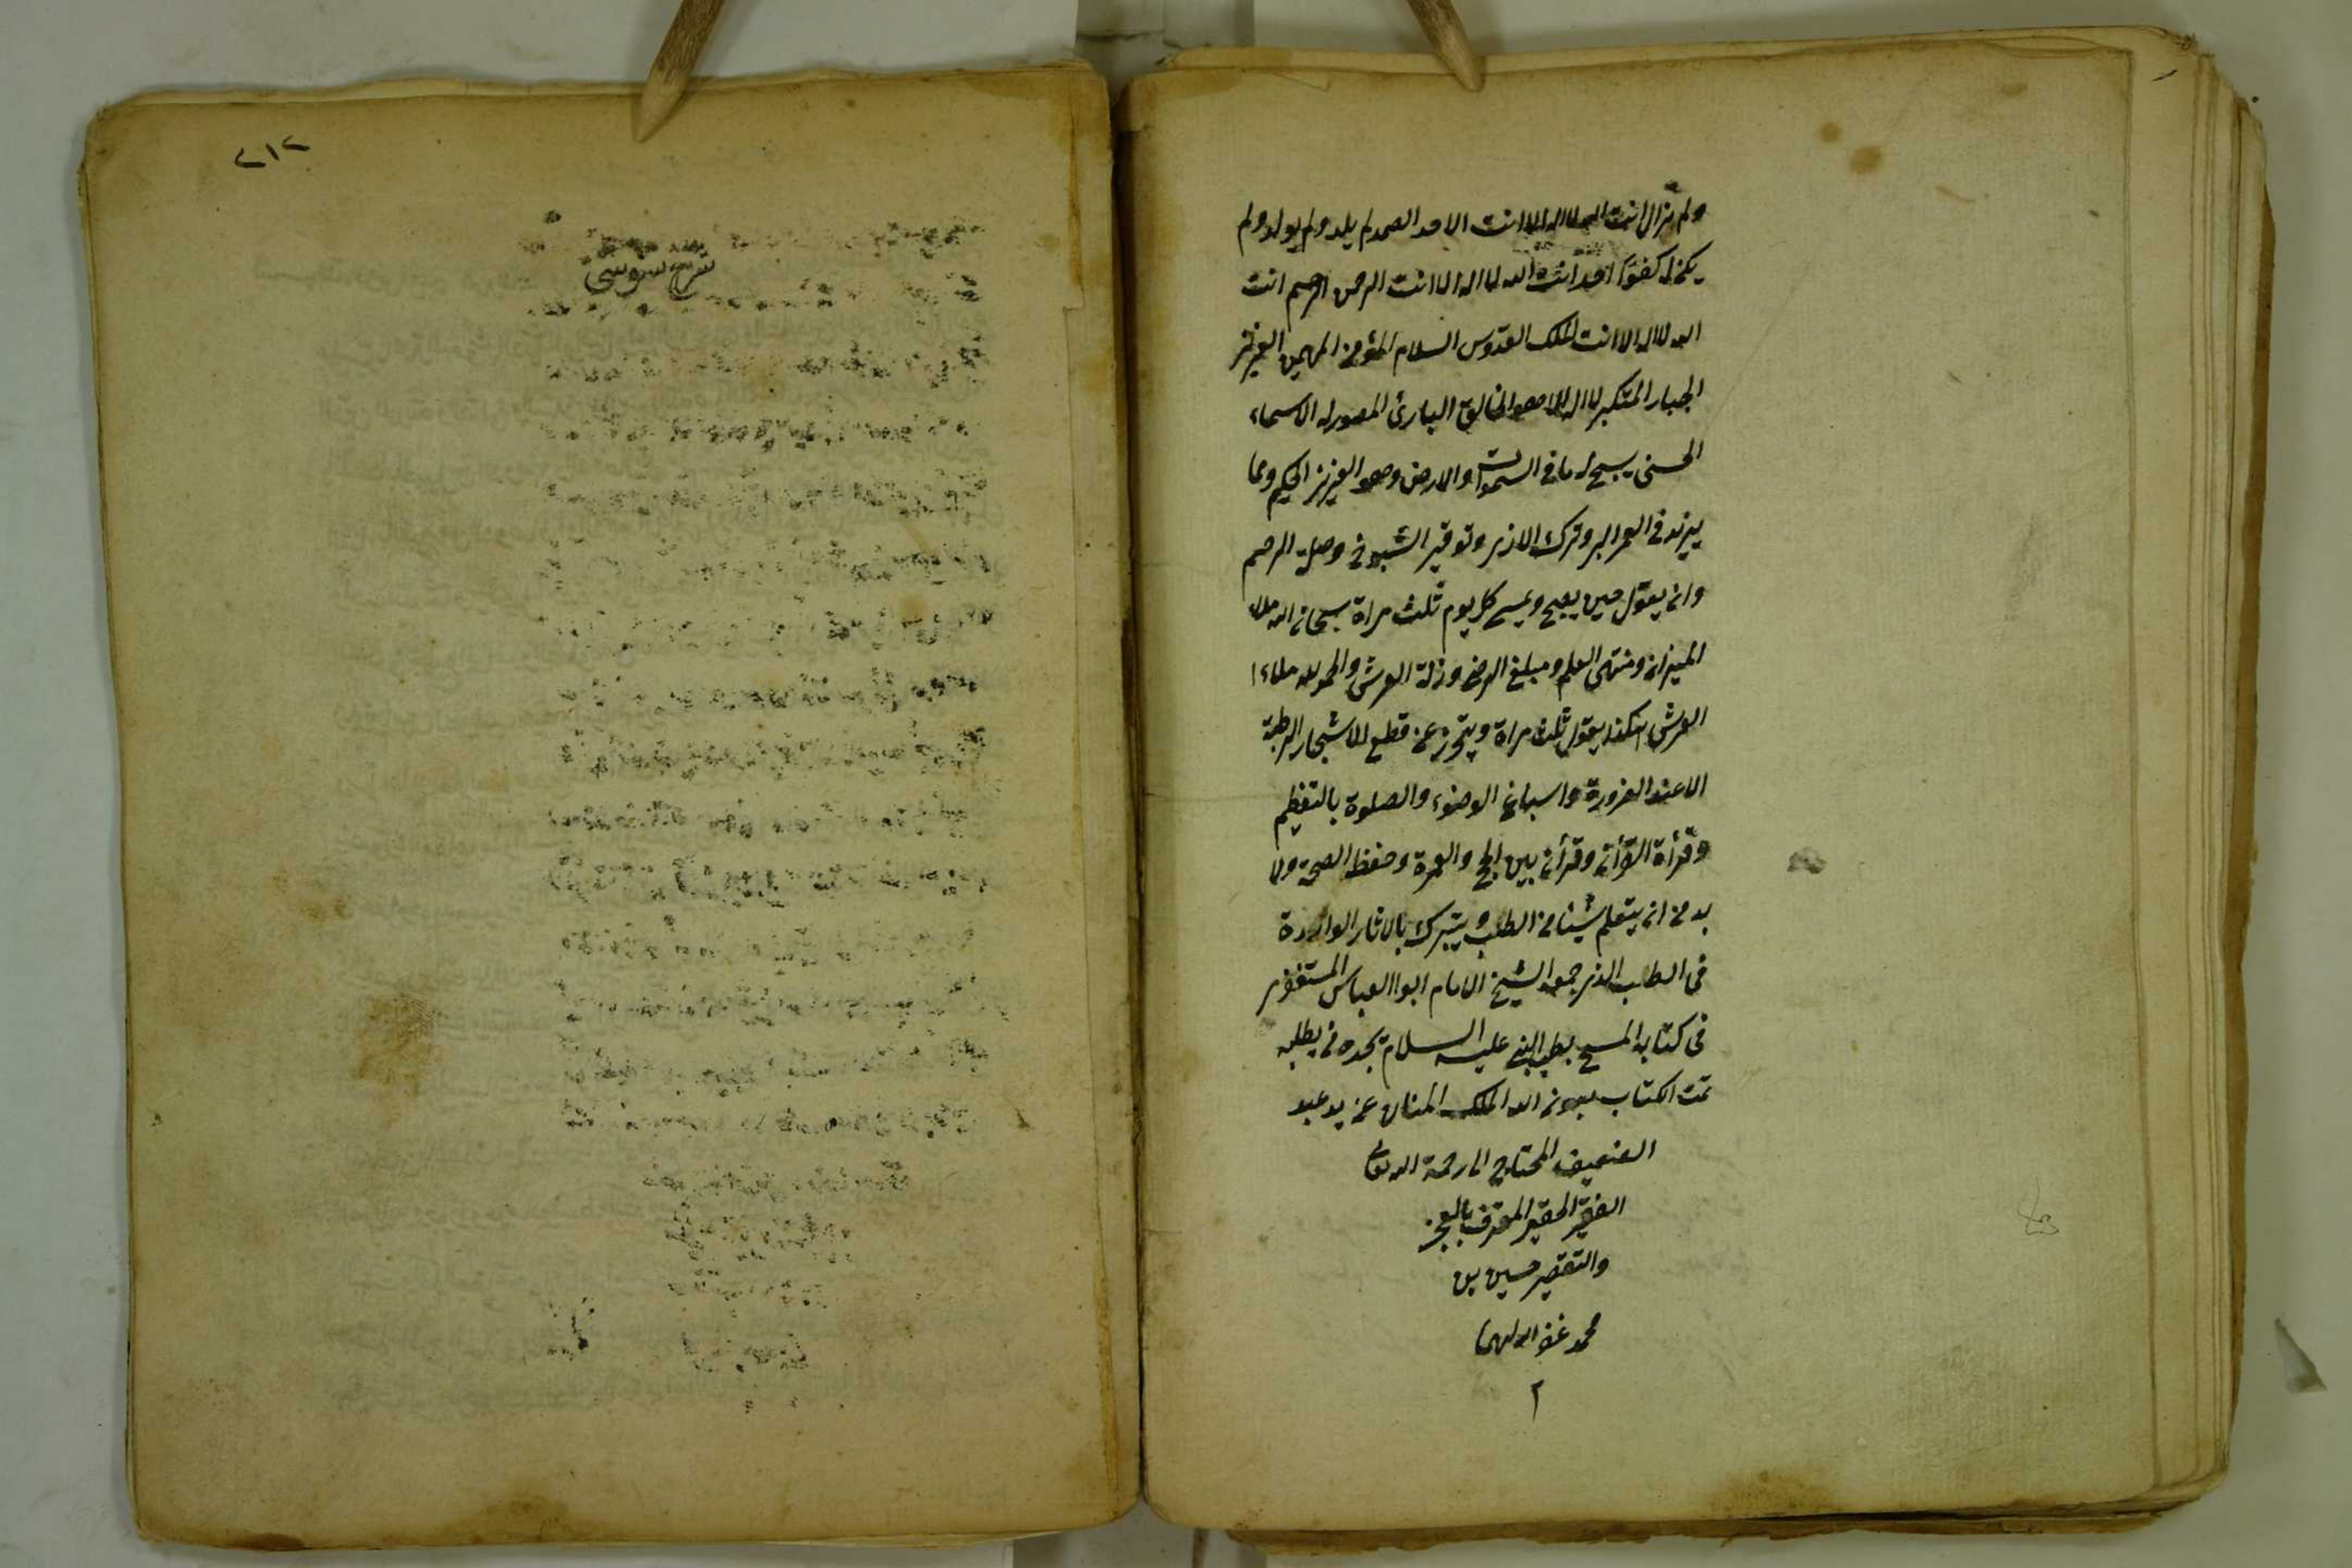 ولم تزال انت الله لا اله الا انت الاحد الصمد لم يلد ولم يولد ولم
يكن له كفوًا احد انت الله لا اله الا انت الرحمن الرحيم انت
الله لا اله الا انت الملك القدوس السلام المؤمن المهيمن العزيز
الجبار المتكبر لا اله الا هو الخالق البارئ المصور له الاسماء
الحسنى يسبح له ما فى السموات والارض وهو العزيز الحكيم ومما
يزيد فى العمر البر وترك الاذى وتوقير الشيوخ وصلة الرحم
وان يقول حين يصبح ويمسى كل يوم ثلث مراة سبحان الله ملاء
الميزان ومنتهى العلم ومبلغ الرضى وزنة العرش والحمد لله ملاء
العرش هكذا يقول ثلث مراة ويتحرز عن قطع الاشجار الرطبة
الا عند الضرورة واسباغ الوضوء والصلوة بالتعظيم
وقرأة القرأن وقرأن بين الحج والعمرة وحفظ الصحة ولا
بد من ان يتعلم شيئا من الطب ويتبرك بالاثار الواردة
فى الطب الذى جمعه الشيخ الامام ابوا العباس المستغفرى
فى كتابه المسمى بطب النبى عليه السلام يجده من يطلبه
تمت الكتاب بعون الله الملك المنان عن يد عبد
الضعيف المحتاج الى رحمة الله تعالى
الفقير الحقير المعترف بالعجز
والتقصير حسين بن
محمد غفر الله لهما
٢
٢١٢
شرح سنوسى